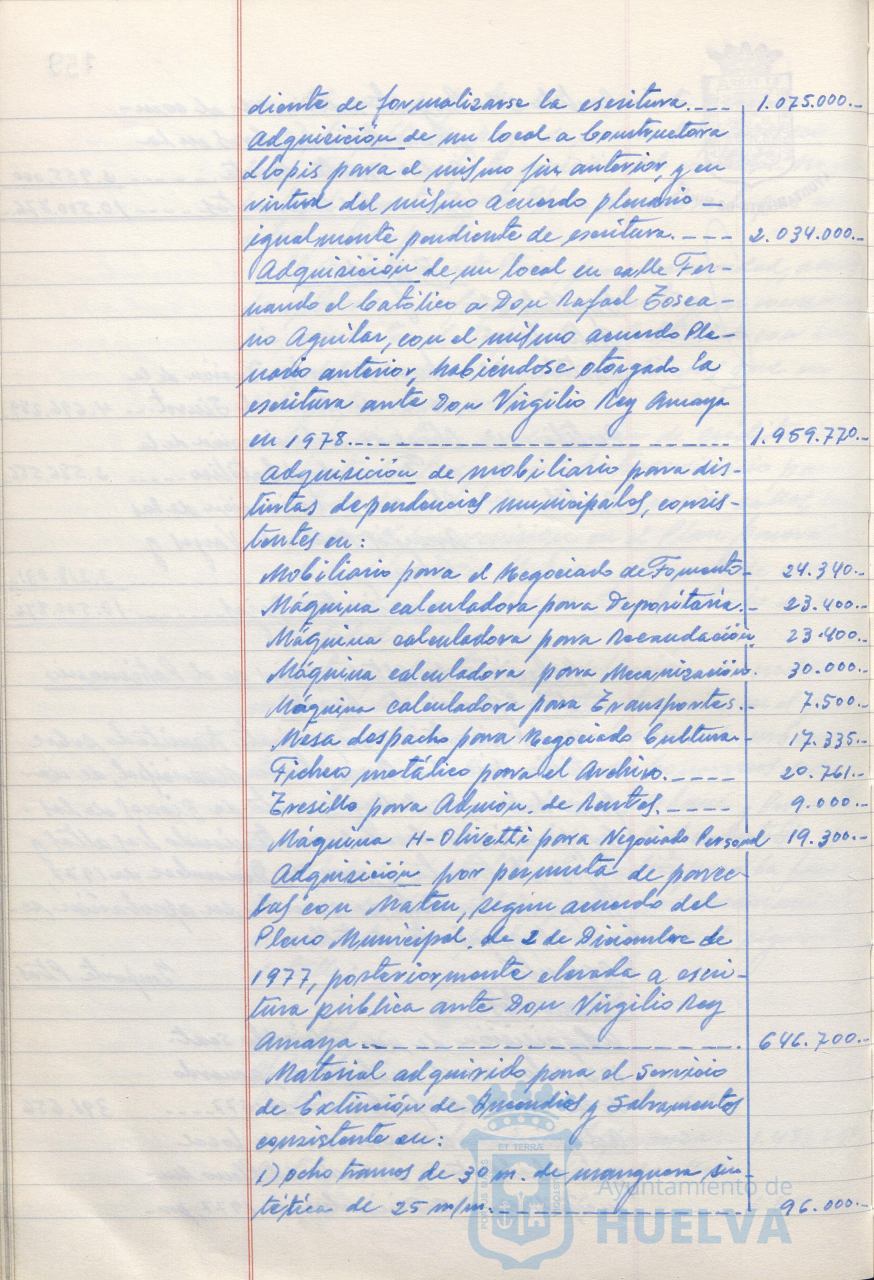 diente de formalizarse la escritura.---- 1.075.000.-
Adquisición de un local a Constructora
Llopis para el mismo fin anterior, y en
virtud del mismo acuerdo plenario -
igualmente pendiente de escritura.---- 2.034.000.-
Adquisición de un local en calle Fer-
nando el Católico a Don Rafael Tosca-
no Aguilar, con el mismo acuerdo Ple-
nario anterior, habiéndose otorgado la
escritura ante Don Virgilio Rey Amaya
en 1978.---- 1.959.770.-
Adquisición de mobiliario para dis-
tintas dependencias municipales, consis-
tentes en:
Mobiliario para el Negociado de Fomento- 24.340.-
Máquina calculadora para Depositaría.- 23.400.-
Máquina calculadora para Recaudación 23.400.-
Máquina calculadora para Mecanización. 30.000.-
Máquina calculadora para Transportes.- 7.500.-
Mesa despacho para Negociado Cultura- 17.335.-
Fichero metálico para el Archivo.---- 20.761.-
Tresillo para Admón. de Rentas.---- 9.000.-
Máquina H-Olivetti para Negociado Personal 19.300.-
Adquisición por permuta de parce-
las con Mateu, según acuerdo del
Pleno Municipal, de 2 de Diciembre de
1977, posteriormente elevada a escri-
tura pública ante Don Virgilio Rey
Amaya.---- 646.700.-
Material adquirido para el Servicio
de Extinción de Incendios y Salvamentos
consistente en:
1) ocho tramos de 30 m. de manguera sin-
tética de 25 m/m.---- 96.000.-
Ayuntamiento de
HUELVA